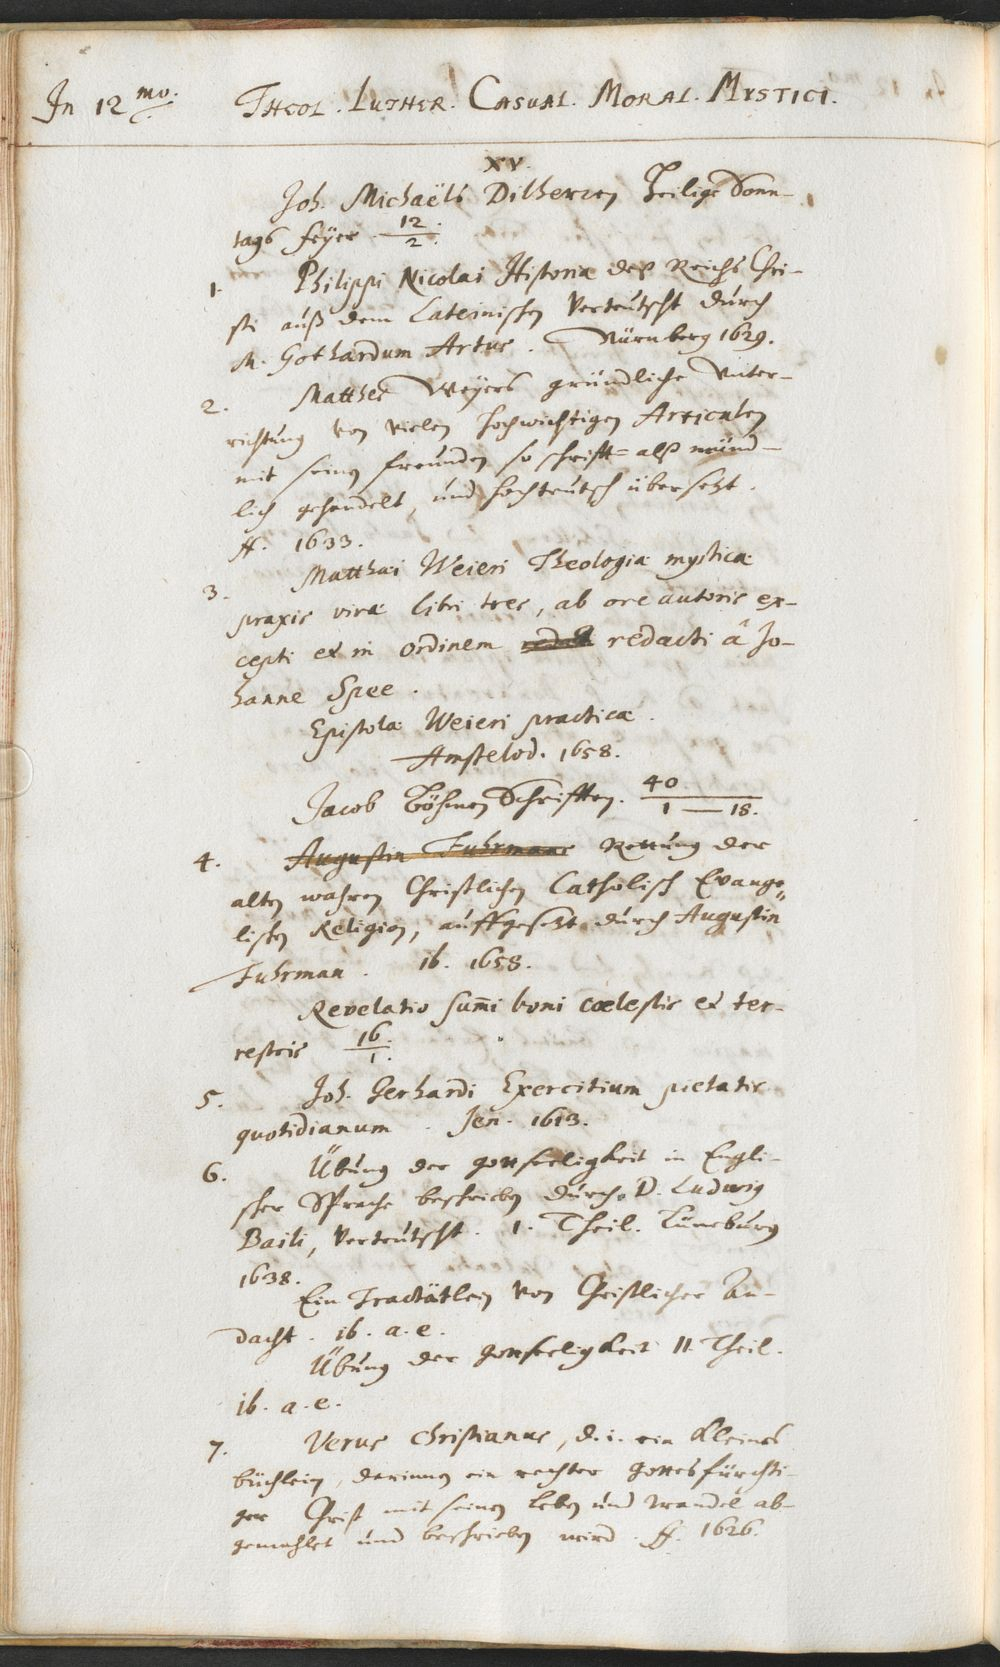 In 12 mo. THEOL. LUTHER. CASUAL. MORAL. MYSTICI.
XV.
Joh. Michaëls Dilherren Heilige Sonn-
tags feyer. 12/2.
1. Philippi Nicolai Historia deß Reichs Chri-
sti auß dem Lateinischen Verteutscht durch
M. Gothardum Artus. Nürnberg 1629.
2. Matthes Weyers gründliche Unter-
richtung von vielen hochwichtigen Articulen
mit seinen freunden so schrifft= alß münd-
lich gehandelt, und hochteutsch übersetzt.
ff. 1633.
3. Matthæi Weieri Theologiæ mysticæ
praxis vivæ libri tres, ab ore autoris ex-
cepti et in ordinem redacti â Jo-
hanne Spee.
Epistolæ Weieri practicæ.
Amstelod. 1658.
Jacob Böhmen Schrifften. 40/1 — 18.
4. Augustin Fuhrmans Rettung der
alten wahren Christlichen Catholisch Evange„
lischen Religion, auffgesetzt durch Augustin
Fuhrman. ib. 1658.
Revelatio sum̄i boni cœlestis et ter-
restris 16/1.
5. Joh. Gerhardi Exercitium pietatis
quotidianum. Jen. 1613.
6. Übung der gottseeligkeit in Engli-
scher Sprache beschrieben durch D. Ludwig
Baili, Verteutscht. 1. Theil. Lüneburg
1638.
Ein Tractätlein von Christlicher An-
dacht. ib. a. e.
Übung der gottseeligkeit II. Theil.
ib. a. e.
7. Verus Christianus, d. i. ein kleines
büchlein, darinnen ein rechter gottesfürchti-
ger Christ mit seinen leben und wandel ab-
gemahlet und beschrieben wird. ff. 1626.